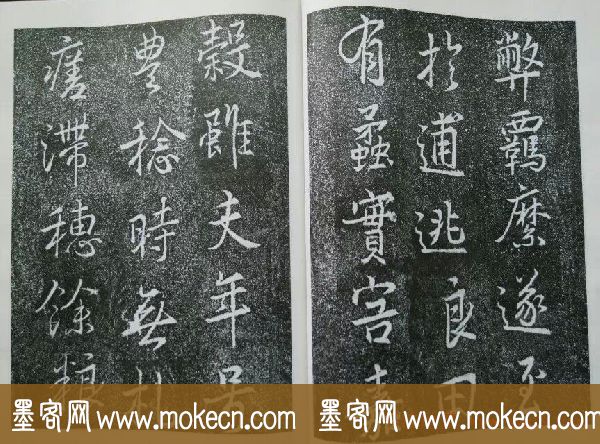 弊羈縻遂至
於逋逃良田
有蟊實害嘉
穀雖夫年
豊稔時無札
瘥滯穗餘糧
墨客网 www.mokecn.com
墨客网 www.mokecn.com